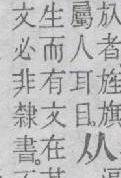 者旌旗从
屬人耳目。
生而有文在其
文必非隸書。